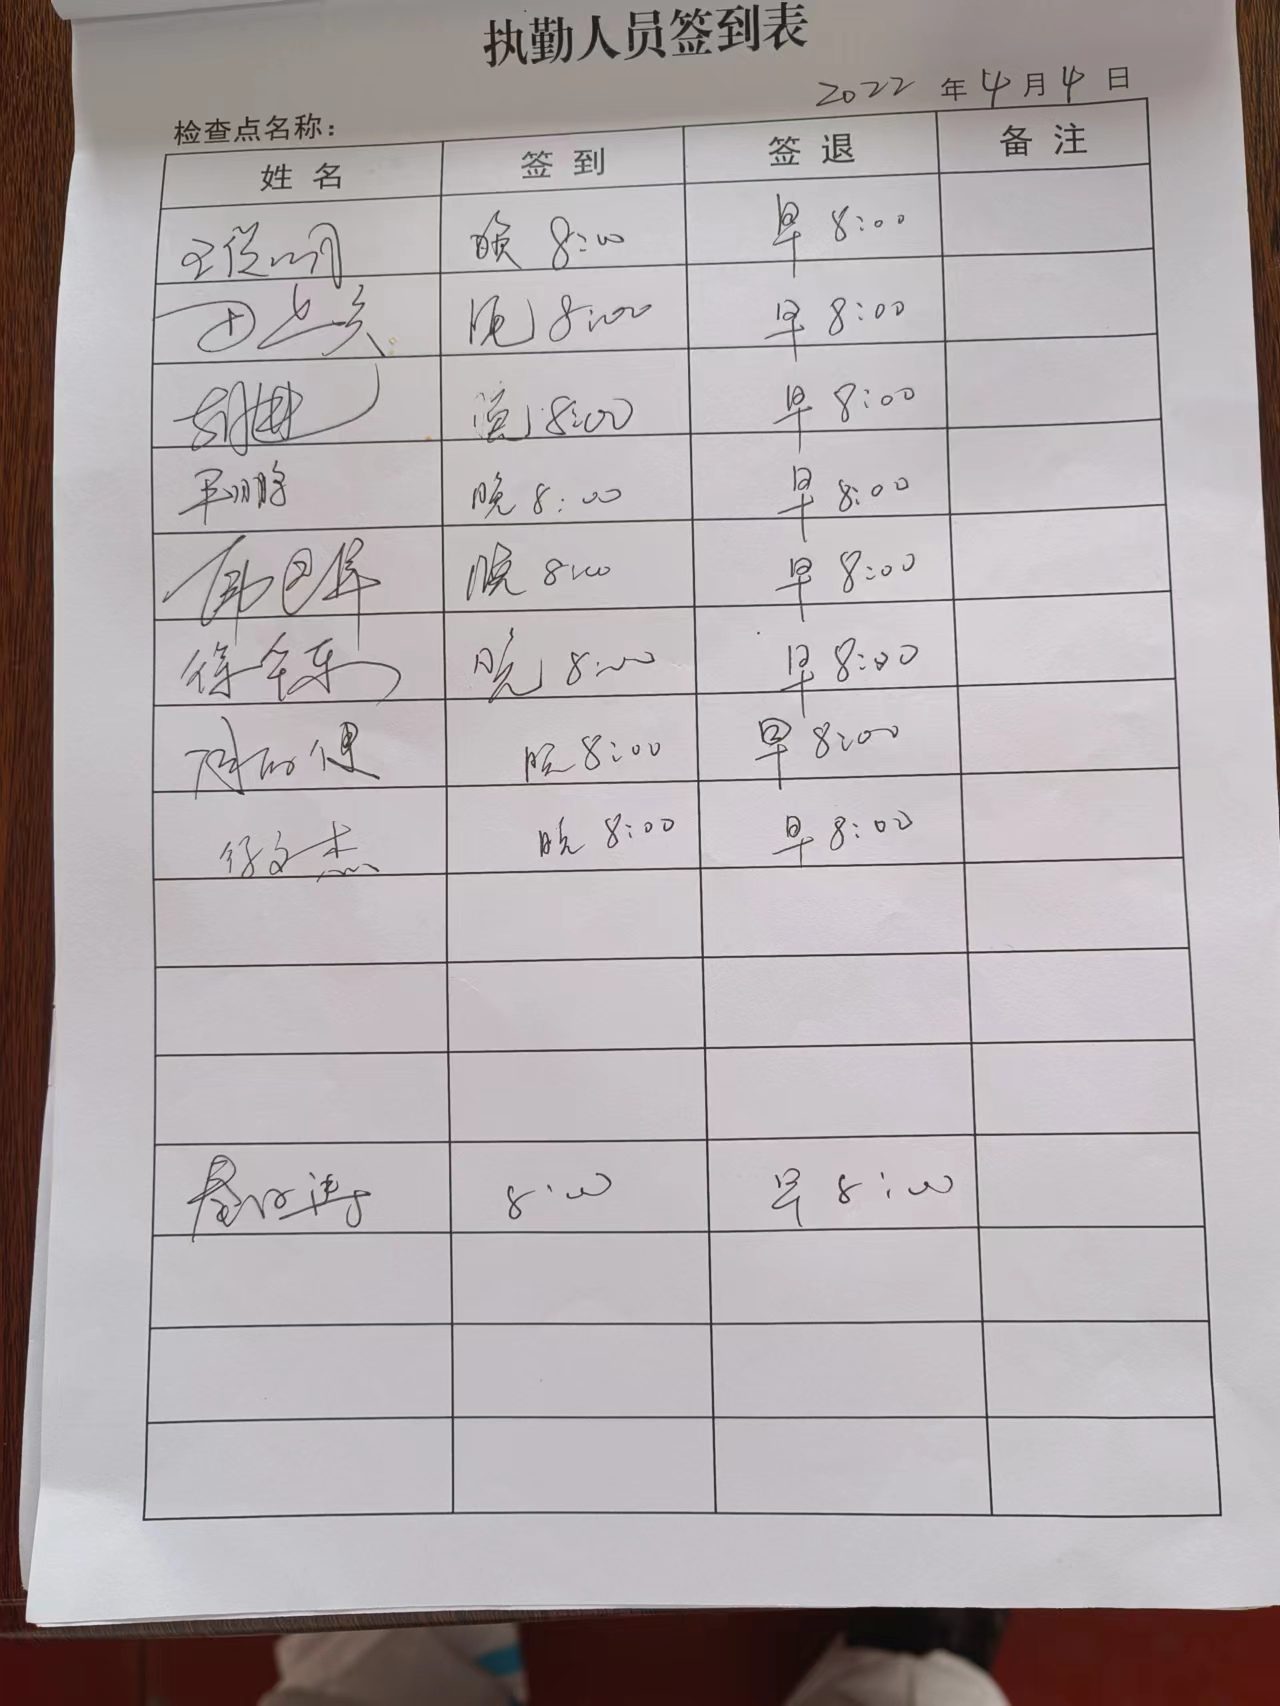 执勤人员签到表
2022 年 4 月 4 日
检查点名称：
姓 名 签 到 签 退 备 注
晚 8:00 早 8:00
晚 8:00 早 8:00
晚 8:00 早 8:00
晚 8:00 早 8:00
晚 8:00 早 8:00
徐 晚 8:00 早 8:00
晚 8:00 早 8:00
徐文杰 晚 8:00 早 8:00
8:00 早 8:00